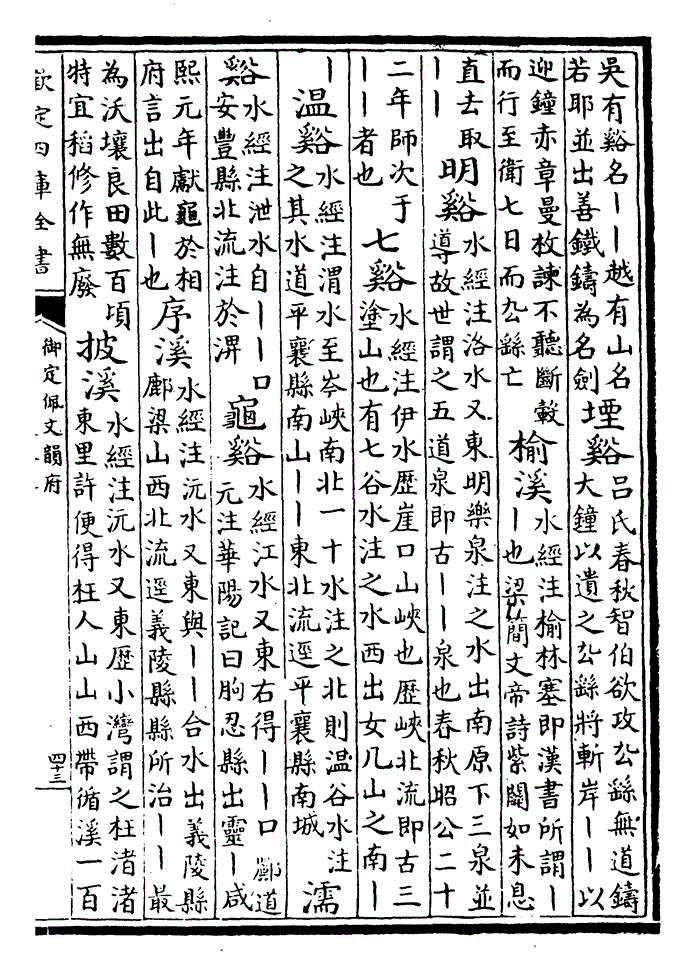 吳有谿名丨丨越有山名
若耶並出善鐵鑄為名劍
堙谿
吕氏春秋智伯欲攻厹繇無道鑄
大鐘以遺之厹繇將斬岸丨丨以
迎鐘赤章曼枚諫不聽斷轂
而行至衛七日而厹繇亡
榆溪
水經注榆林塞即漢書所謂丨
丨也梁簡文帝詩紫關如未息
直去取
丨丨
明谿
水經注洛水又東明樂泉注之水出南原下三泉並
導故世謂之五道泉即古丨丨泉也春秋昭公二十
二年師次于
丨丨者也
七谿
水經注伊水歷崖口山峽也歷峽北流即古三
塗山也有七谷水注之水西出女几山之南丨
丨
温谿
水經注渭水至岑峽南北一十水注之北則温谷水注
之其水道平襄縣南山丨丨東北流逕平襄縣南城
濡
谿
水經注泄水自丨丨口
安豐縣北流注於淠
龜谿
水經江水又東右得丨丨口酈道
元注華陽記曰朐忍縣出靈丨咸
熙元年獻龜於相
府言出自此丨也
序溪
水經注沅水又東與丨丨合水出義陵縣
鄜梁山西北流逕義陵縣縣所治丨丨最
為沃壤良田數百頃
特宜稻修作無廢
披溪
水經注沅水又東歷小灣謂之枉渚渚
東里許便得枉人山山西帶循溪一百
欽定四庫全書
御定佩文韻府
四十三